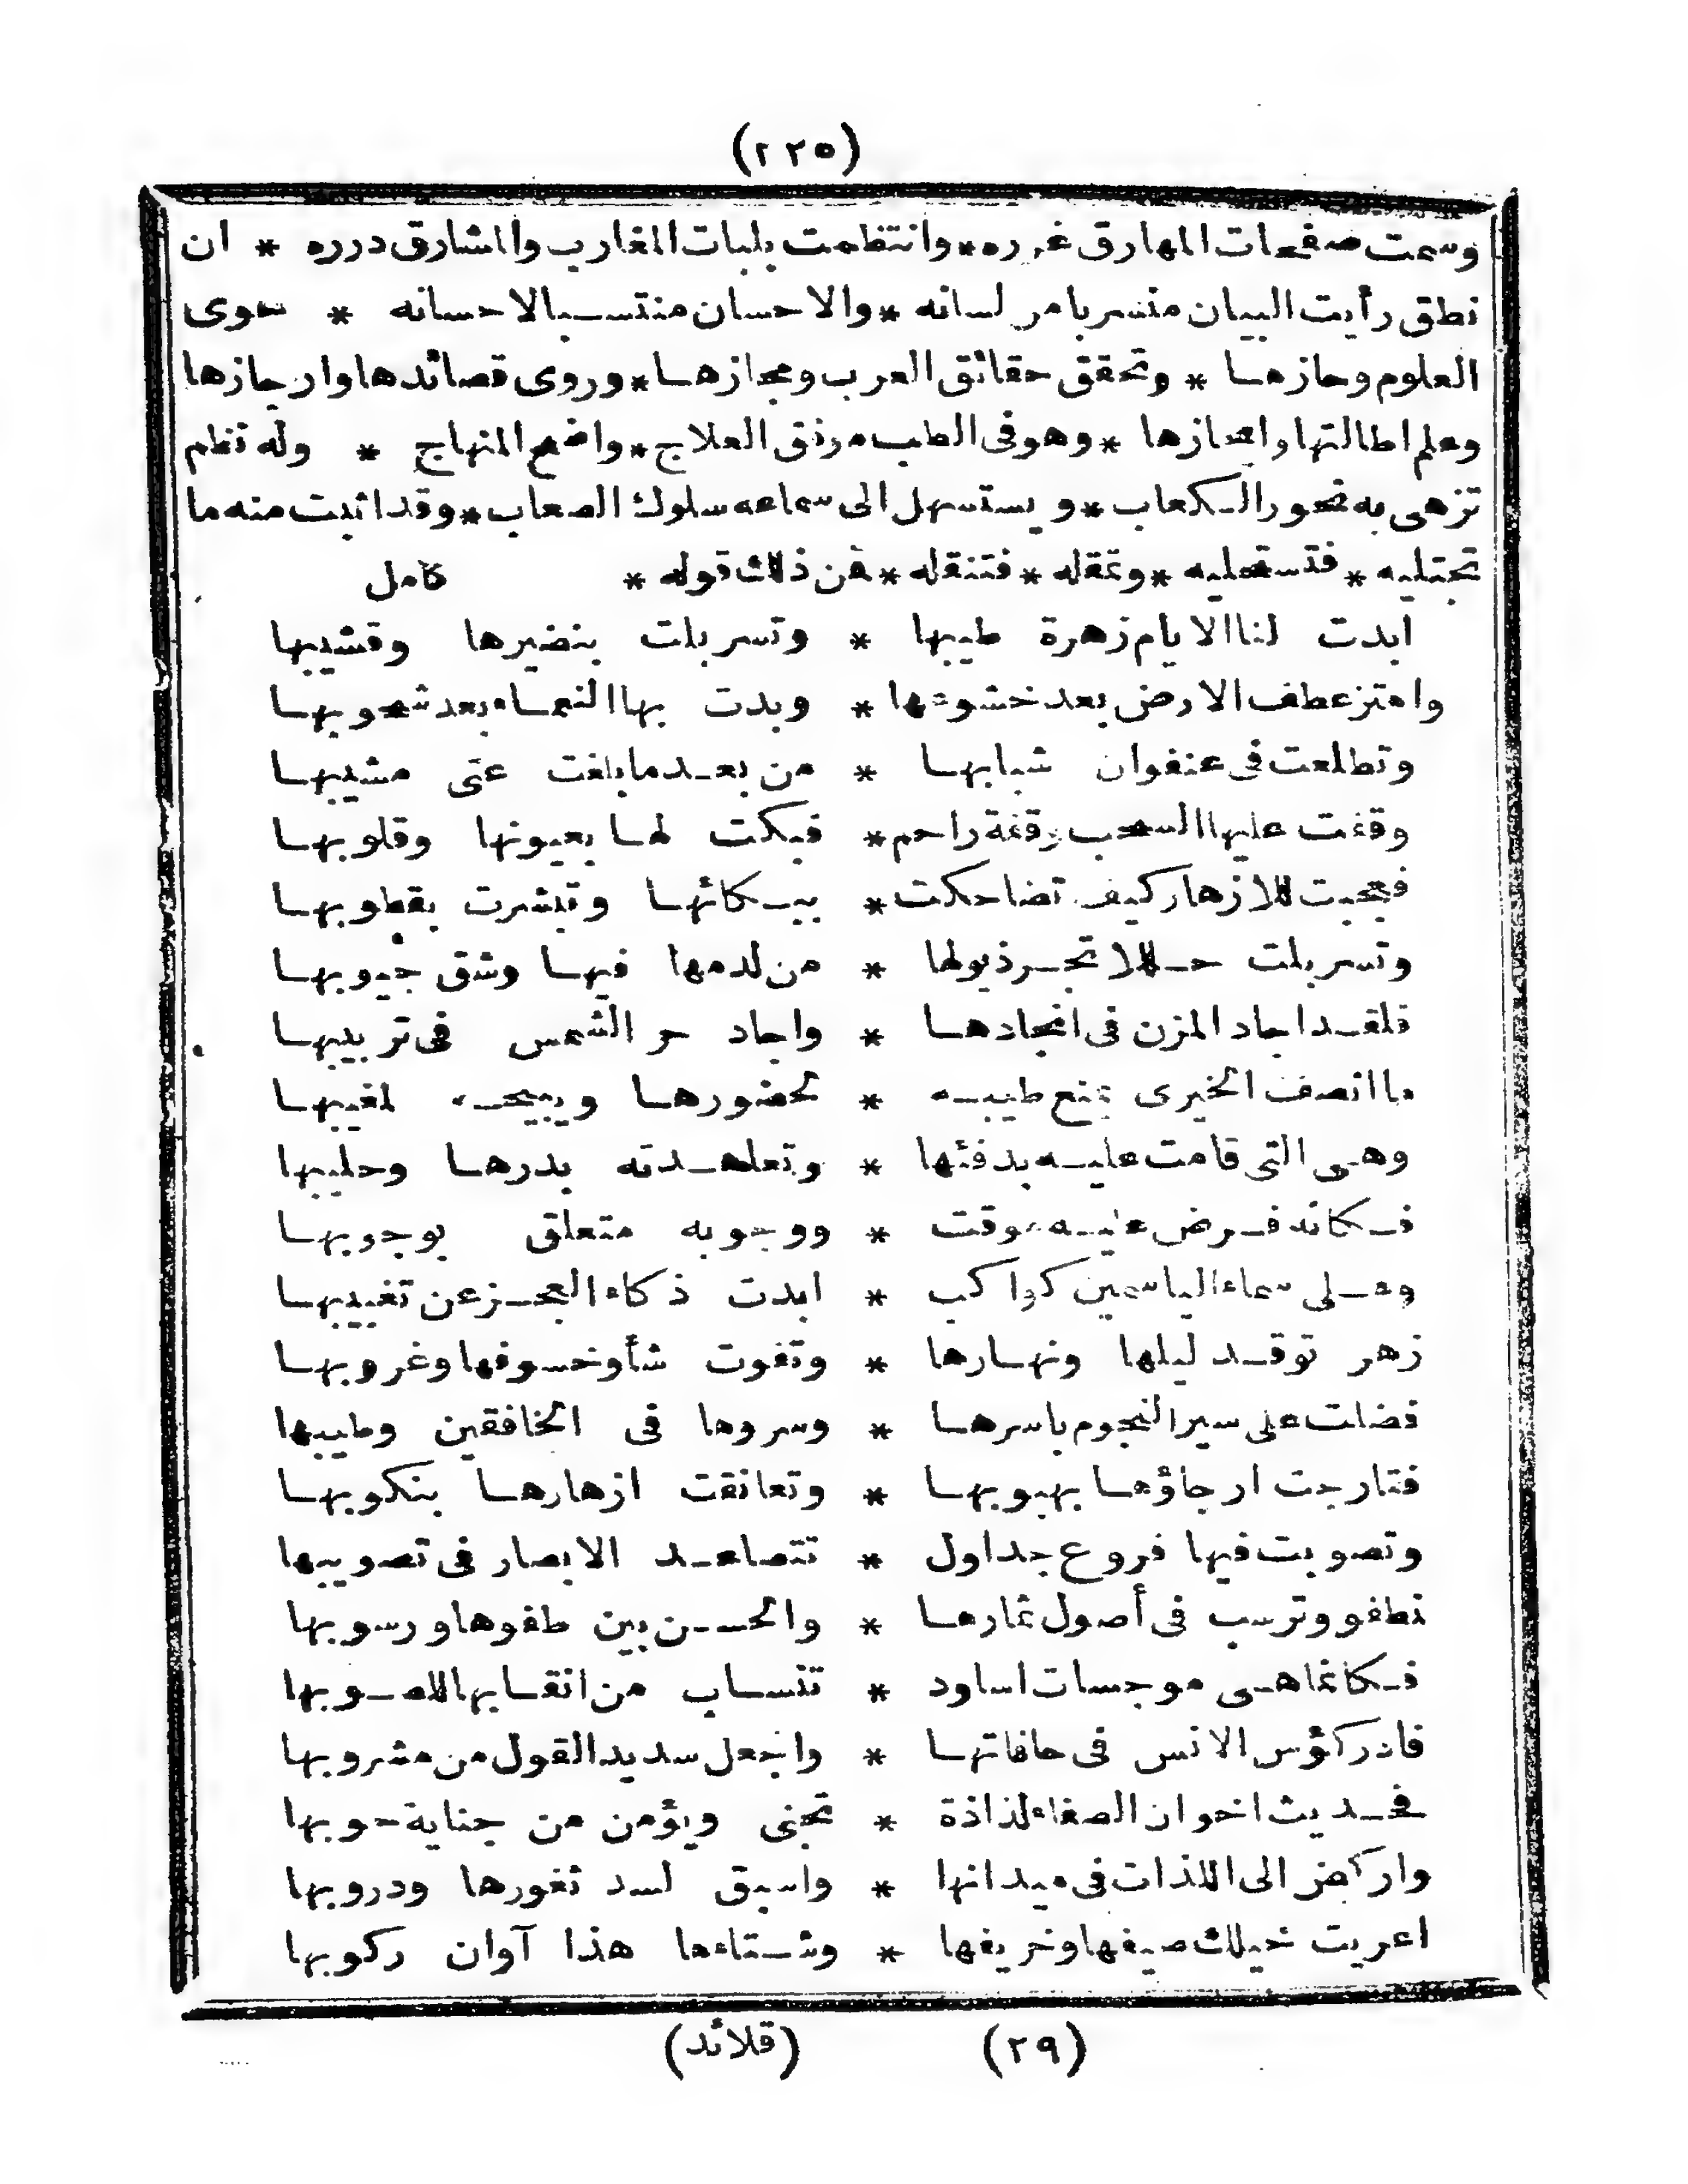 (٢٢٥)
وسمت صفحات المهارق غرره * وانتظمت بلبات المغارب والمشارق درره * ان
نطق رأيت البيان منسربا من لسانه * والاحسان منتسبا لاحسانه * حوى
العلوم وحازها * وتحقق حقائق العرب ومجازها * وروى قصائدها وارجازها
وعلم اطالتها وايجازها * وهو فى الطب موفق العلاج * واضح المنهاج * وله نظم
تزهى به نحور الكعاب * ويستسهل الى سماعه سلوك الصعاب * وقد اثبت منه ما
تجتليه * فتستحليه * وتمقله * فتنقله * فمن ذلك قوله * كامل
ابدت لنا الايام زهرة طيبها * وتسربلت بنضيرها وقشيبها
واهتز عطف الارض بعد خشوعها * وبدت بها النعماء بعد شحوبها
وتطلعت فى عنفوان شبابها * من بعد ما بلغت عتى مشيبها
وقفت عليها السحب وقفة راحم * فبكت لها بعيونها وقلوبها
فعجبت للازهار كيف تضاحكت * ببكائها وتبشرت بقطوبها
وتسربلت حللا تجر ذيولها * من لدمها فيها وشق جيوبها
فلقد اجاد المزن فى انجادها * واجاد حر الشمس فى تربيبها
ما انصف الخيرى يمنع طيبه * لحضورها ويبيحه لمغيبها
وهى التى قامت عليه بدفئها * وتعاهدته بدرها وحليبها
فكانه فرض عليه موقت * ووجوبه متعلق بوجوبها
وعلى سماء الياسمين كواكب * ابدت ذكاء العجز عن تغييبها
زهر توقد ليلها ونهارها * وتفوت شأو خسوفها وغروبها
فضلت على سير النجوم باسرها * وسروها فى الخافقين وطيبها
فتارجت ارجاؤها بهبوبها * وتعانقت ازهارها بنكوبها
وتصوبت فيها فروع جداول * تتصاعد الابصار فى تصويبها
تطفو وترسب فى أصول ثمارها * والحسن بين طفوها ورسوبها
فكانما هى موجسات اساود * تنساب من انقابها للصوبها
فادر كؤس الانس فى حافاتها * واجعل سديد القول من مشروبها
فحديث اخوان الصفاء لذاذة * تجنى ويؤمن من جناية حوبها
واركض الى اللذات فى ميدانها * واسبق لسد ثغورها ودروبها
اعريت خيلك صيفها وخريفها * وشتاءها هذا آوان ركوبها
(٢٩) (قلائد)